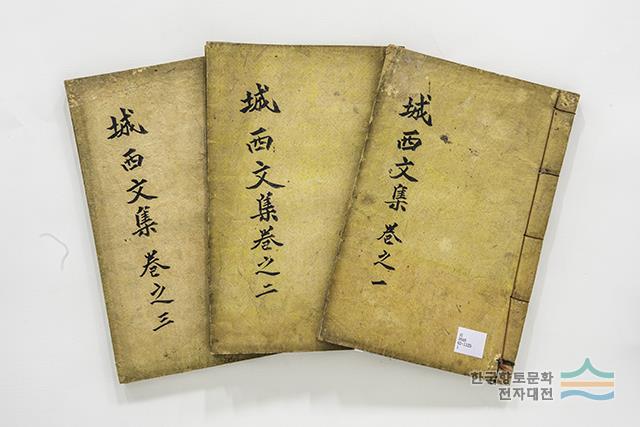 城西文集卷之三
城西文集卷之二
城西文集卷之一
한국향토문화
전자대전